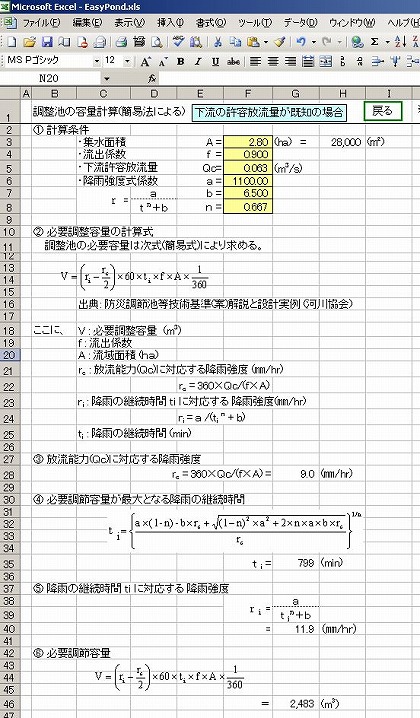 Microsoft Excel - EasyPond.xls
ファイル(F) 編集(E) 表示(V) 挿入(I) 書式(O) ツール(T) データ(D) ウィンドウ(W) ヘルプ(H)
MS Pゴシック 12 B I U
N20
A B C D E F G H I
1 調整池の容量計算(簡易法による) 下流の許容放流量が既知の場合 戻る
2 ① 計算条件
3 ・集水面積 A= 2.80 (ha) = 28,000 (m³)
4 ・流出係数 f= 0.900
5 ・下流許容放流量 Qc= 0.063 (m³/s)
6 ・降雨強度式係数 a= 1100.00
7 r = a / tⁿ+b b= 6.500
8 n= 0.667
9
10 ② 必要調整容量の計算式
11 調整池の必要容量は次式(簡易式)により求める。
12
13
14 V=(ri-rc/2)×60×ti×f×A×1/360
15
16 出典:防災調節池等技術基準(案)解説と設計実例(河川協会)
17
18 ここに、 V:必要調整容量 (m³)
19 f:流出係数
20 A:流域面積(ha)
21 rc:放流能力(Qc)に対応する降雨強度(mm/hr)
22 rc=360×Qc/(f×A)
23 ri:降雨の継続時間 ti に対応する降雨強度(mm/hr)
24 ri=a /(tiⁿ+b)
25 ti:降雨の継続時間(min)
26
27 ③ 放流能力(Qc)に対応する降雨強度
28 rc=360×Qc/(f×A)= 9.0 (mm/hr)
29
30 ④ 必要調節容量が最大となる降雨の継続時間
31
32 ti={(a×(1-n)-b×rc+√((1-n)²×a²+2×n×a×b×rc))/rc}^1/n
33
34
35 ti= 799 (min)
36
37 ⑤ 降雨の継続時間 ti に対応する降雨強度
38 ri= a / tiⁿ+b
39
40 = 11.9 (mm/hr)
41
42 ⑥ 必要調節容量
43
44 V=(ri-rc/2)×60×ti×f×A×1/360
45
46 = 2,483 (m³)
47